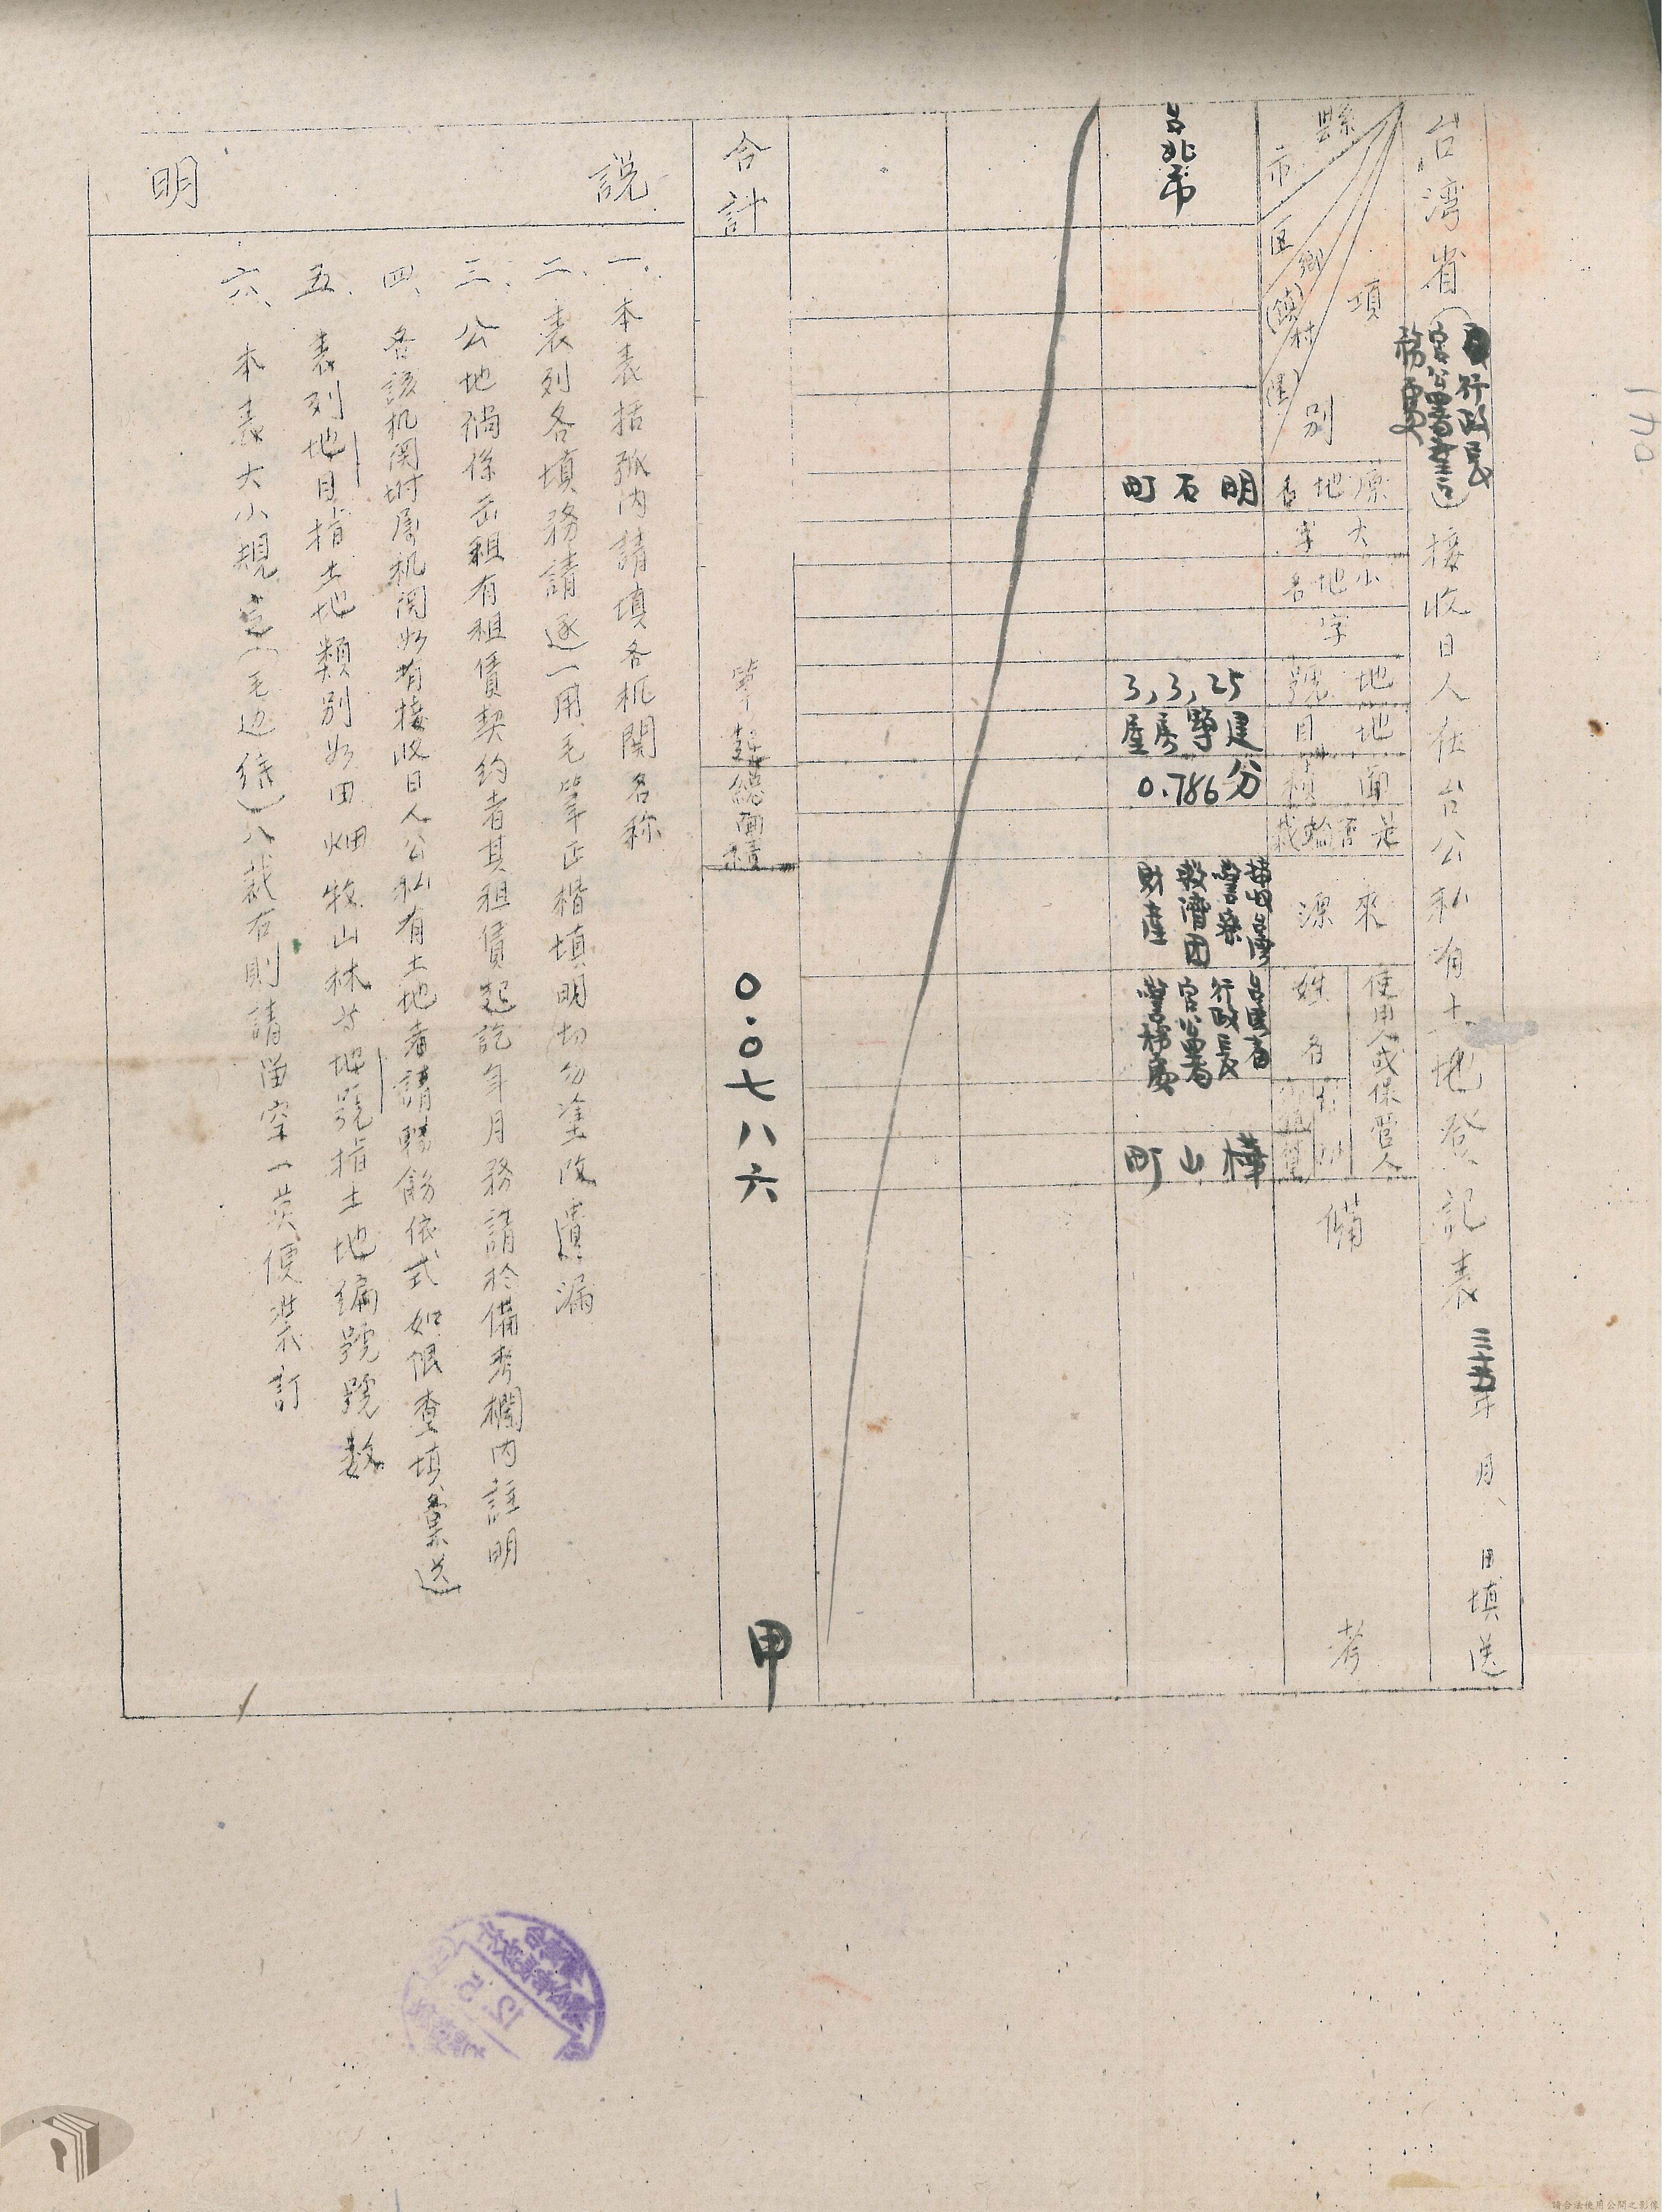 台湾省(行政長官公署警務處)接收日人在台公私有土地登記表 三十五年 月 日填送
縣市
區鄉(鎮)村(里)
項別
原地名
大字
小地名
字
地號
地目
面積
是否
來源
使用人或保管人
姓名
備考
台北市
明石町
3,3,25
建築房屋
0.786分
接收台灣警察救濟團財產
台灣省行政長官公署警務處
樺山町
合計
筆
總面積
0.0七八六
甲
說明
一、本表括弧內請填各机關名称
二、表列各填務請逐一用毛筆正楷填明切勿塗改遺漏
三、公地倘係出租有租賃契約者其租賃起訖年月務請於備考欄內註明
四、各該机関附属机関如有接收日人公私有土地者請轉飭依式如限查填彙送
五、表列地目指土地類別如田畑牧山林等地號指土地編號號数
六、本表大小規定(毛边紙)八裁右則請留空一英便裝訂
170
12.
請合法使用公開之影像